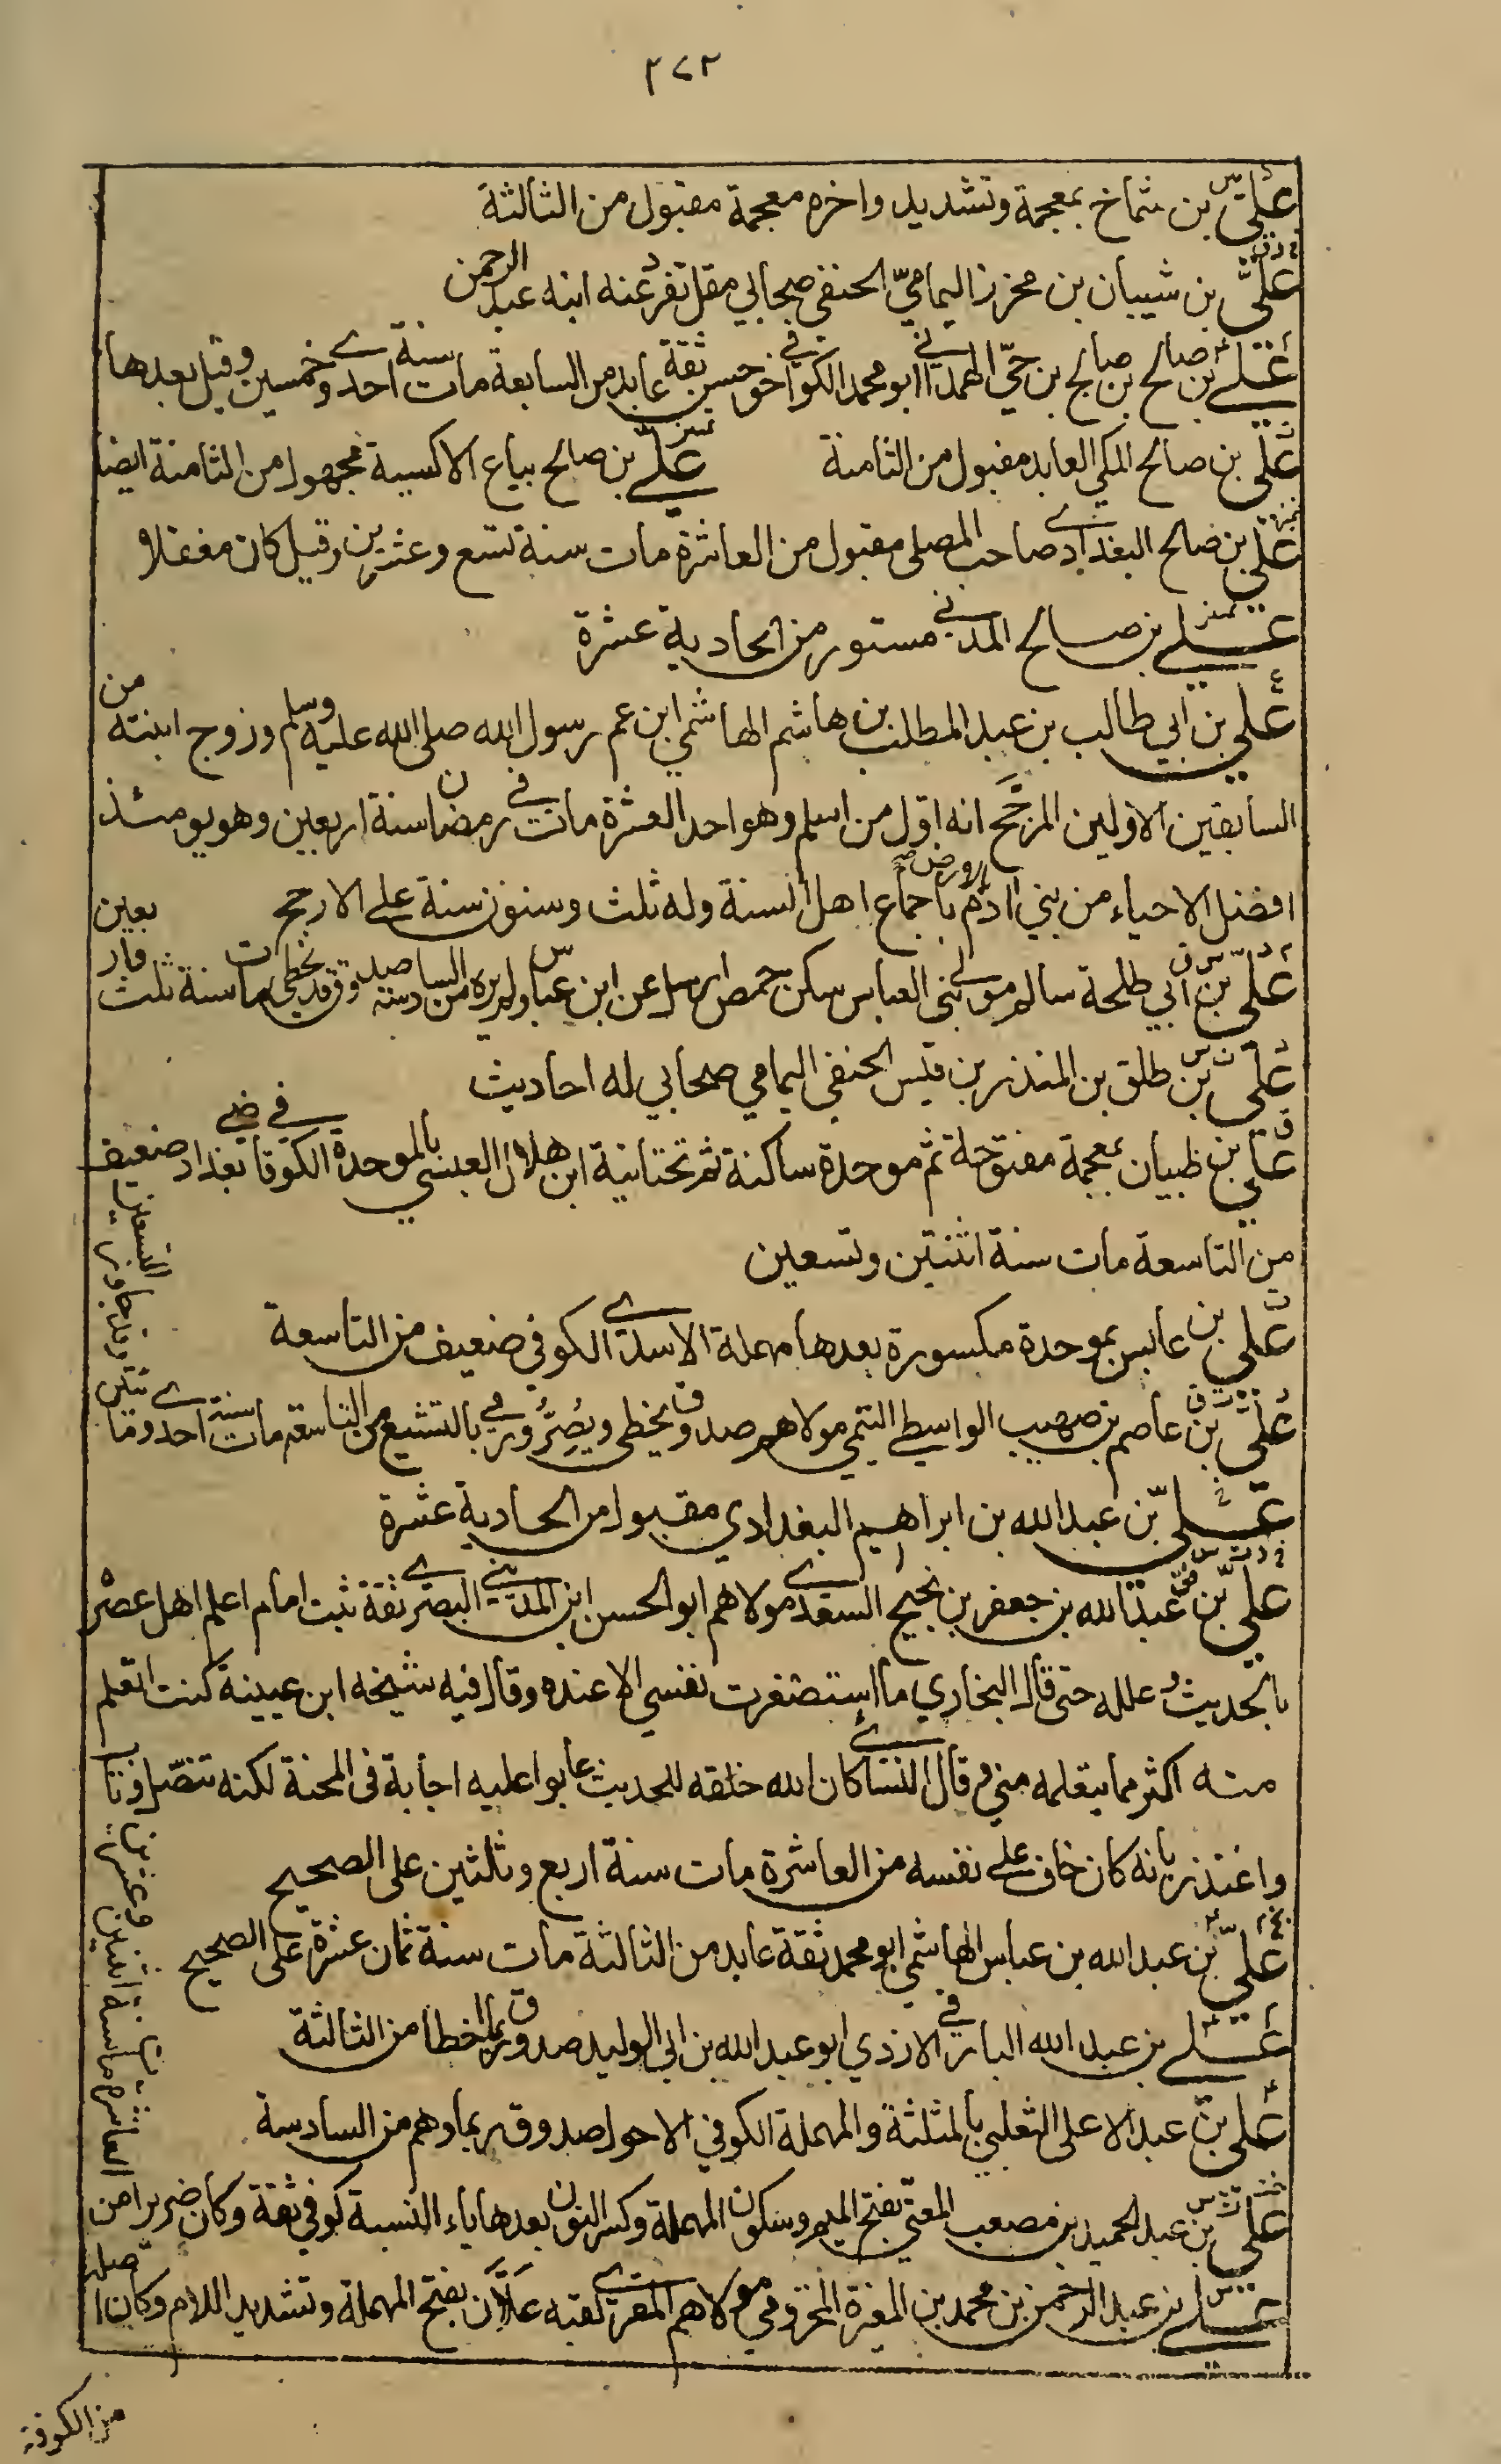 ٢٧٢
علي بن شماخ بمعجمة وتشديد واخره معجمة مقبول من الثالثة
علي بن شيبان بن محرز اليمامي الحنفي صحابي مقل تفرد عنه ابنه عبد الرحمن
علي بن صالح بن صالح بن حي الهمداني ابو محمد الكوفي اخو حسن ثقة عابد من السابعة مات سنة احدى وخمسين وقيل بعدها
علي بن صالح المكي العابد مقبول من الثامنة علي بن صالح بياع الاكسية مجهول من الثامنة ايضا
علي بن صالح البغدادي صاحب المصلى مقبول من العاشرة مات سنة تسع وعشرين وقيل كان مغفلا
علي بن صالح المدني مستور من الحادية عشرة
علي بن ابي طالب بن عبد المطلب بن هاشم الهاشمي ابن عم رسول الله صلى الله عليه وسلم وزوج ابنته من
السابقين الاولين المرجح انه اول من اسلم وهو احد العشرة مات في رمضان سنة اربعين وهو يومئذ
افضل الاحياء من بني ادم بالارض باجماع اهل السنة وله ثلث وستون سنة على الارجح
علي بن ابي طلحة سالم مولى بني العباس سكن حمص ارسل عن ابن عباس ولم يره من السادسة صدوق قد يخطئ مات سنة ثلث واربعين
علي بن طلق بن المنذر بن قيس الحنفي اليمامي صحابي له احاديث
علي بن ظبيان بمعجمة مفتوحة ثم موحدة ساكنة ثم تحتانية ابن هلال العبسي بالموحدة الكوفي قاضي بغداد ضعيف
من التاسعة مات سنة اثنتين وتسعين
علي بن عابس بموحدة مكسورة بعدها مهملة الاسدي الكوفي ضعيف من التاسعة
علي بن عاصم بن صهيب الواسطي التيمي مولاهم صدوق يخطئ ويصر ورمي بالتشيع من التاسعة مات سنة احدى ومائتين
وقد جاوز التسعين
علي بن عبد الله بن ابراهيم البغدادي مقبول من الحادية عشرة
علي بن عبد الله بن جعفر بن نجيح السعدي مولاهم ابو الحسن ابن المديني البصري ثقة ثبت امام اعلم اهل عصره
بالحديث وعلله حتى قال البخاري ما استصغرت نفسي الا عنده وقال فيه شيخه ابن عيينة كنت اتعلم
منه اكثر مما يتعلمه مني وقال النسائي كان الله خلقه للحديث عابوا عليه اجابة في المحنة لكنه تنصل وتاب
واعتذر بانه كان خاف على نفسه من العاشرة مات سنة اربع وثلثين على الصحيح
علي بن عبد الله بن عباس الهاشمي ابو محمد ثقة عابد من الثالثة مات سنة ثمان عشرة على الصحيح
علي بن عبد الله البارقي الازدي ابو عبد الله بن ابي الوليد صدوق ربما اخطا من الثالثة
علي بن عبد الاعلى الثعلبي بالمثلثة والمهملة الكوفي الاحول صدوق ربما وهم من السادسة
علي بن عبد الحميد بن مصعب المعني بفتح الميم وسكون المهملة وكسر النون بعدها ياء النسبة كوفي ثقة وكان ضريرا من
العاشرة مات سنة اثنتين وعشرين
علي بن عبد الرحمن بن محمد بن المغيرة المخزومي مولاهم المصري لقبه علان بفتح المهملة وتشديد اللام وكان اصله
من الكوفة